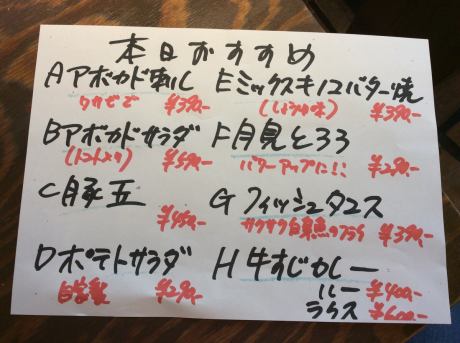 本日おすすめ
Aアボカド刺し
ワサビで ¥390,-
Bアボカドサラダ
(トマト入り) ¥590,-
C月豚五
¥450,-
Dポテトサラダ
自家製 ¥290,-
Eミックスキノコバター焼
(しょうゆ味) ¥390,-
F月見とろろ
パワーアップに!! ¥290,-
Gフィッシュタコス
サクサク白身魚のフライ ¥390,-
H牛すじカレー
ルー ¥400,-
ライス ¥600,-